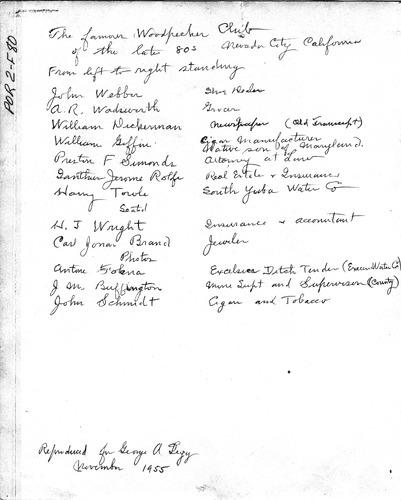 POR 2-F 80
The famous Woodpecker Club
of the late 80s Nevada City California
From left to right standing
John Webber
A. R. Wadsworth Grocer
William Dickerman Newspaper (Old Transcript)
William Giffin Cigar Manufacturer
Native son of Maryland.
Preston F Simonds Attorney at Law
Jerome Rolfe Real Estate & Insurance
Harry Towle South Yuba Water Co
Seated
H. J Wright Insurance & accountant
Carl Jonas Brand Jeweler
Photos
Excelsior Ditch Tender (Water Co)
J M. Buffington Mine Supt and Supervisor (County)
John Schmidt Cigar and Tobacco
Reproduced for George A
November 1955